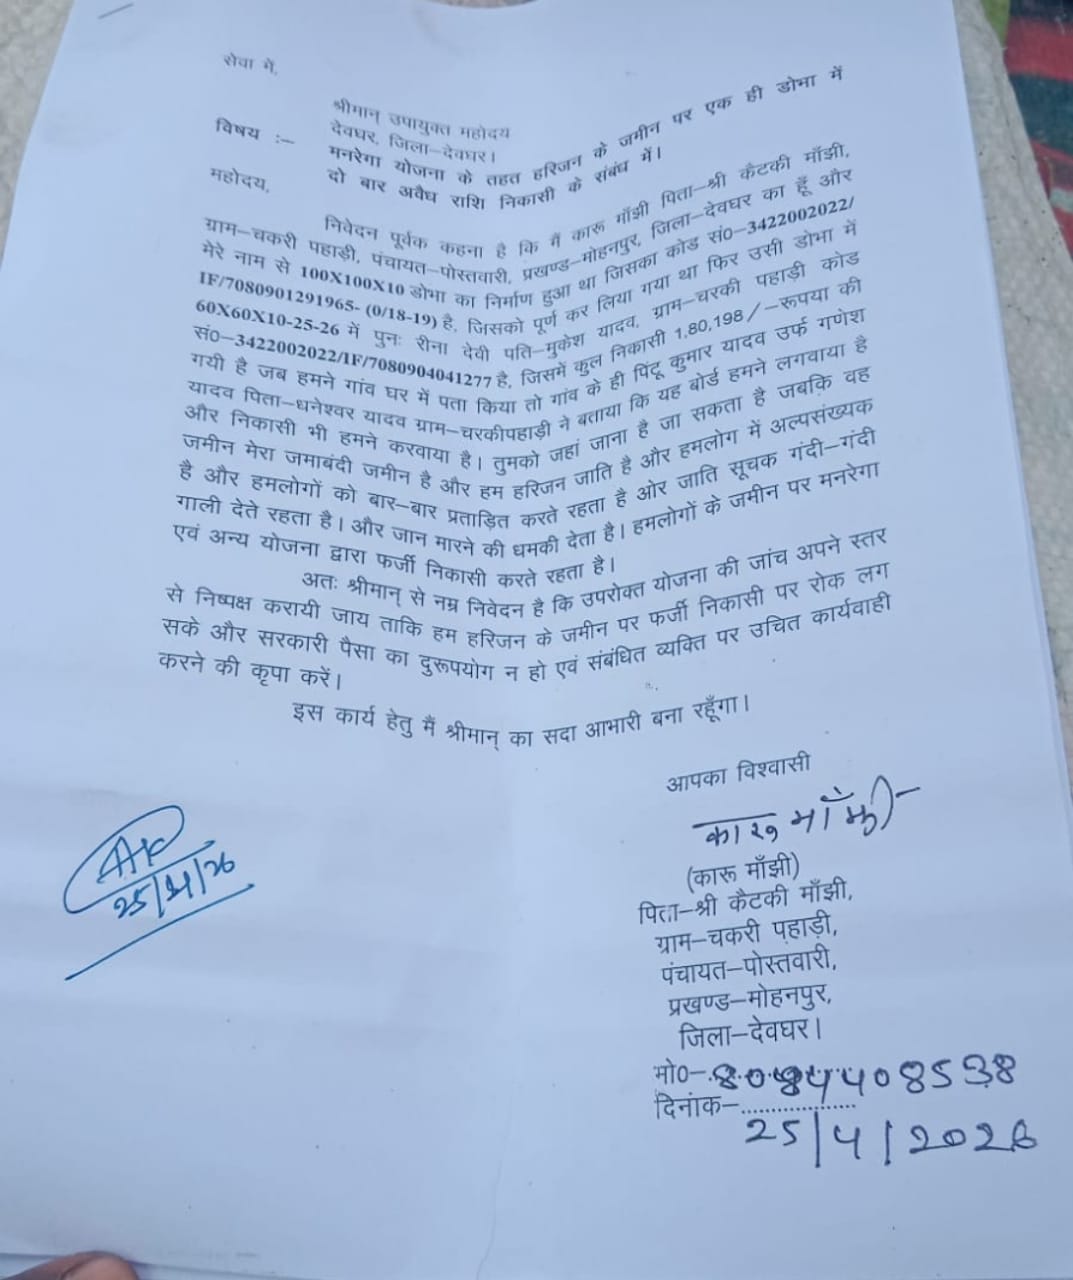 सेवा में,
श्रीमान् उपायुक्त महोदय
देवघर, जिला–देवघर।
विषय :–– मनरेगा योजना के तहत हरिजन के जमीन पर एक ही डोभा में
दो बार अवैध राशि निकासी के संबंध में।
महोदय,
निवेदन पूर्वक कहना है कि मैं कारू माँझी पिता–श्री कैटकी माँझी,
ग्राम–चकरी पहाड़ी, पंचायत–पोस्तवारी, प्रखण्ड–मोहनपुर, जिला–देवघर का हूँ और
मेरे नाम से 100X100X10 डोभा का निर्माण हुआ था जिसका कोड सं0–3422002022/
IF/7080901291965- (0/18-19) है, जिसको पूर्ण कर लिया गया था फिर उसी डोभा में
60X60X10-25-26 में पुनः रीना देवी पति–मुकेश यादव, ग्राम–चरकी पहाड़ी कोड
सं0–3422002022/IF/7080904041277 है, जिसमें कुल निकासी 1,80,198/–रूपया की
गयी है जब हमने गांव घर में पता किया तो गांव के ही पिंटू कुमार यादव उर्फ गणेश
यादव पिता–धनेश्वर यादव ग्राम–चरकीपहाड़ी ने बताया कि यह बोर्ड हमने लगवाया है
और निकासी भी हमने करवाया है। तुमको जहां जाना है जा सकता है जबकि वह
जमीन मेरा जमाबंदी जमीन है और हम हरिजन जाति है और हमलोग में अल्पसंख्यक
है और हमलोगों को बार–बार प्रताड़ित करते रहता है ओर जाति सूचक गंदी–गंदी
गाली देते रहता है। और जान मारने की धमकी देता है। हमलोगों के जमीन पर मनरेगा
एवं अन्य योजना द्वारा फर्जी निकासी करते रहता है।
अतः श्रीमान् से नम्र निवेदन है कि उपरोक्त योजना की जांच अपने स्तर
से निष्पक्ष करायी जाय ताकि हम हरिजन के जमीन पर फर्जी निकासी पर रोक लग
सके और सरकारी पैसा का दुरूपयोग न हो एवं संबंधित व्यक्ति पर उचित कार्यवाही
करने की कृपा करें।
इस कार्य हेतु मैं श्रीमान् का सदा आभारी बना रहूँगा।
आपका विश्वासी
कारू माँझी
(कारू माँझी)
पिता–श्री कैटकी माँझी,
ग्राम–चकरी पहाड़ी,
पंचायत–पोस्तवारी,
प्रखण्ड–मोहनपुर,
जिला–देवघर।
मो0–8084408538
दिनांक–..................
25/4/2026
25/4/26